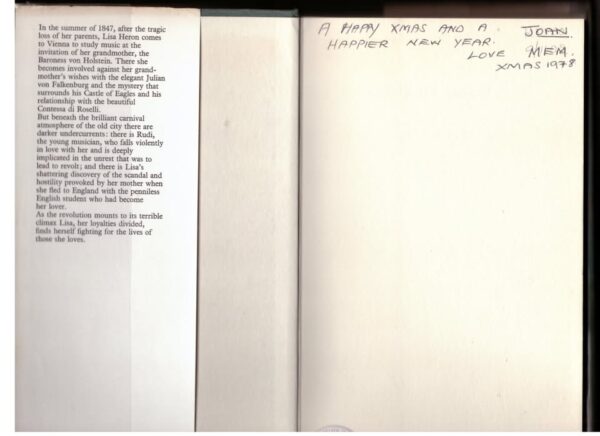 In the summer of 1847, after the tragic
loss of her parents, Lisa Heron comes
to Vienna to study music at the
invitation of her grandmother, the
Baroness von Holstein. There she
becomes involved against her grand-
mother's wishes with the elegant Julian
von Falkenburg and the mystery that
surrounds his Castle of Eagles and his
relationship with the beautiful
Contessa di Roselli.
But beneath the brilliant carnival
atmosphere of the old city there are
darker undercurrents: there is Rudi,
the young musician, who falls violently
in love with her and is deeply
implicated in the unrest that was to
lead to revolt; and there is Lisa's
shattering discovery of the scandal and
hostility provoked by her mother when
she fled to England with the penniless
English student who had become
her lover.
As the revolution mounts to its terrible
climax Lisa, her loyalties divided,
finds herself fighting for the lives of
those she loves.
A HAPPY XMAS AND A JOAN
HAPPIER NEW YEAR.
LOVE MEM.
XMAS 1978